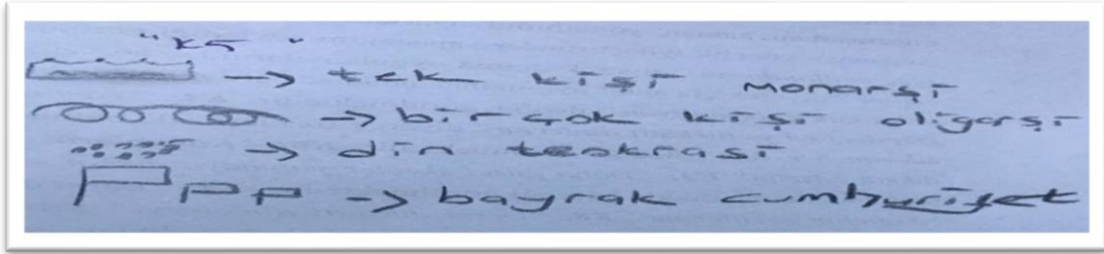 "K5"
→ tek kişi monarşi
→ birçok kişi oligarşi
→ din teokrasi
→ bayrak cumhuriyet